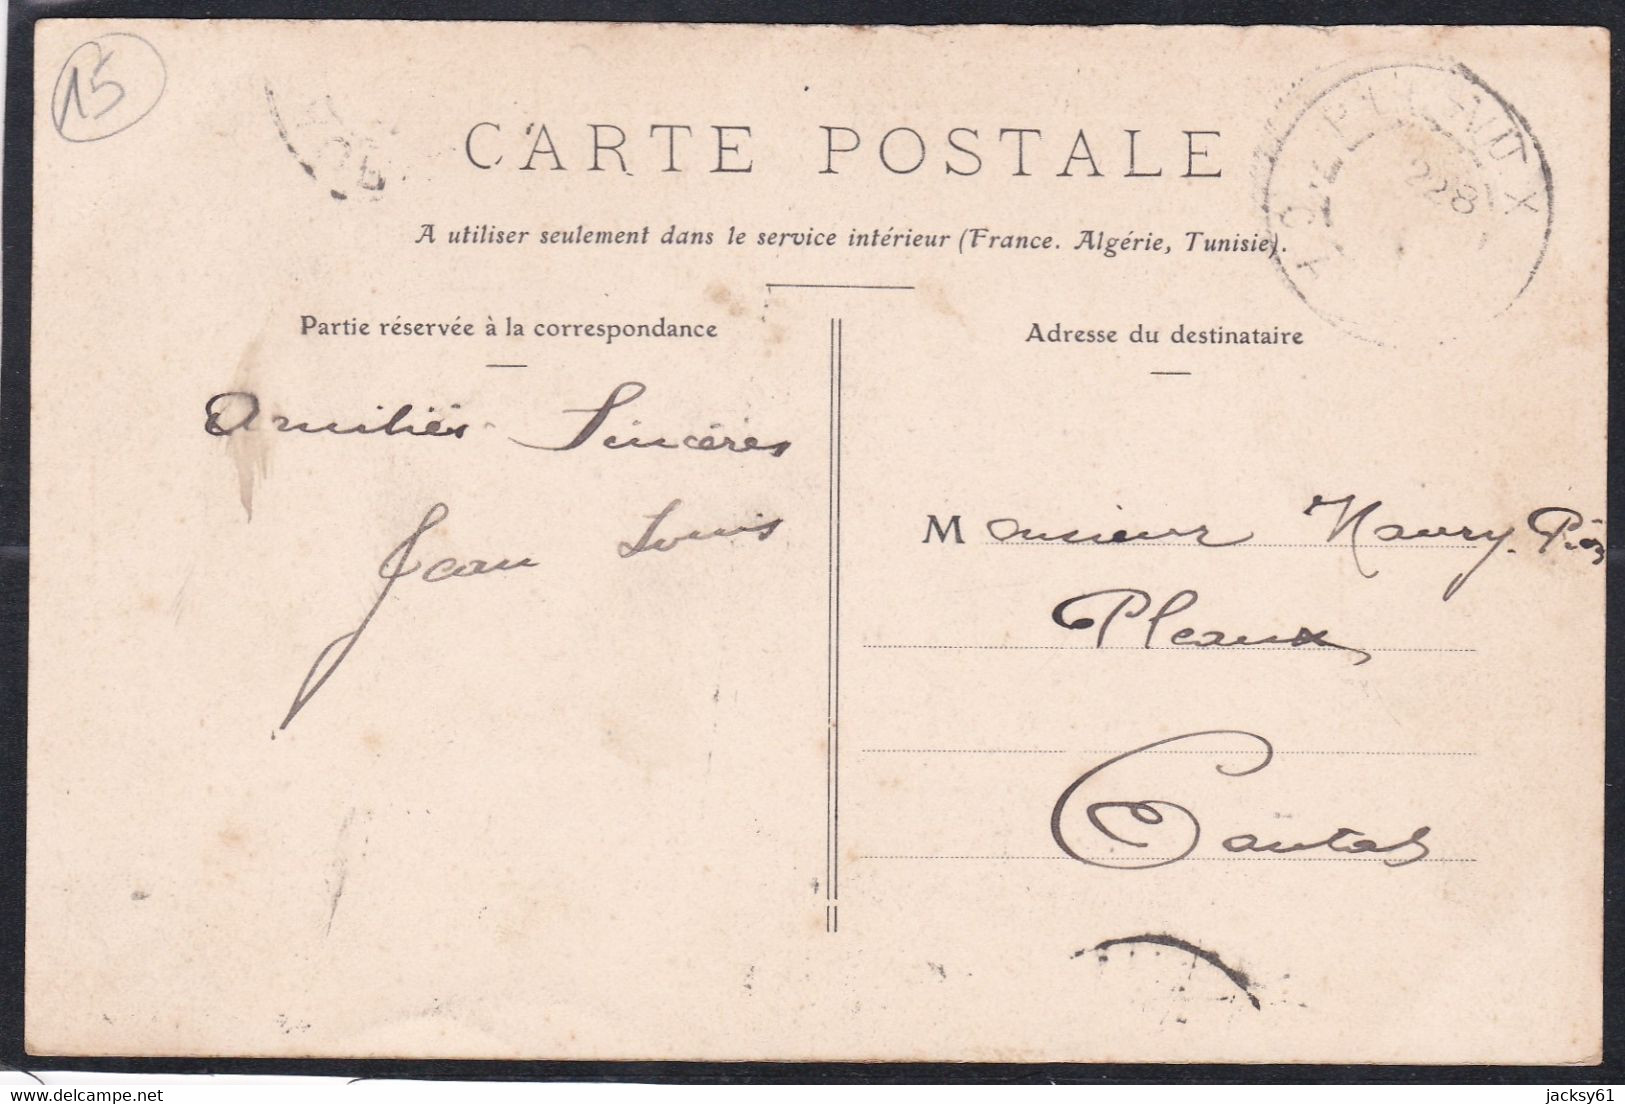 15
CARTE POSTALE
A utiliser seulement dans le service intérieur (France. Algérie, Tunisie).
Partie réservée à la correspondance
Adresse du destinataire
Amitiés Sincères
Jean Louis
Monsieur Maury.
Pleaux
Cantal
PLEAUX
228
https://www.delcampe.net
jacksy61